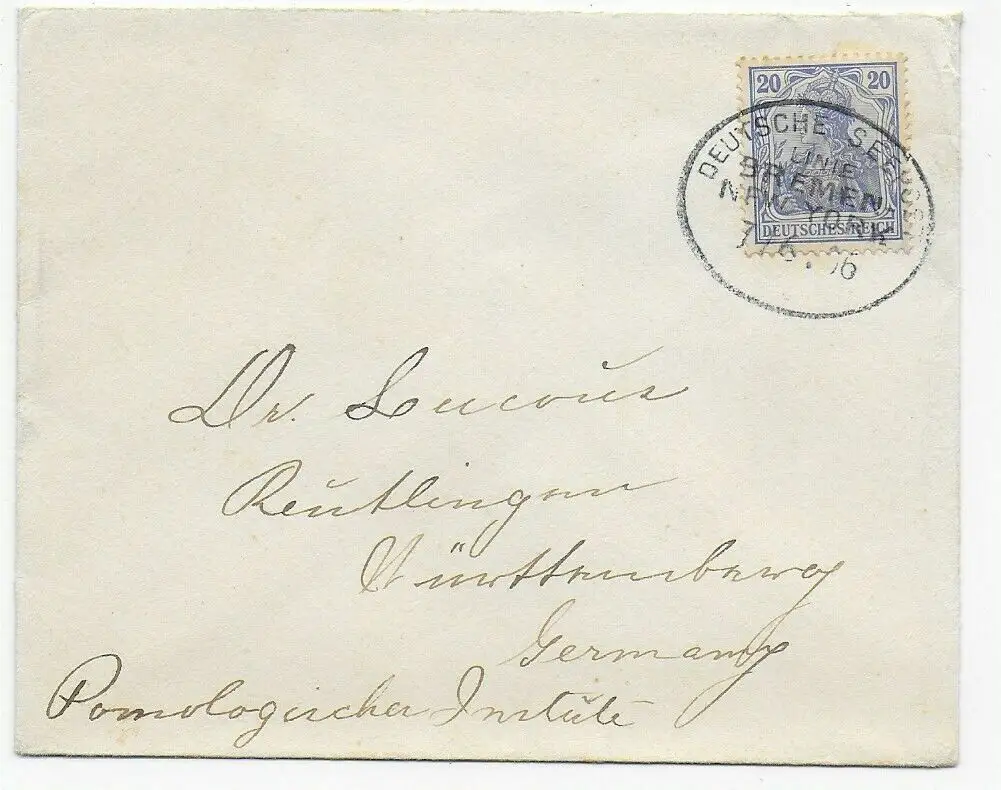 20 20
DEUTSCHE SEEPOST
LINIE
BREMEN-
NEW YORK
7/6.06
DEUTSCHES REICH
Dr. Lucous
Reutlingen
Württemberg
Germany
Pomologischer Institute